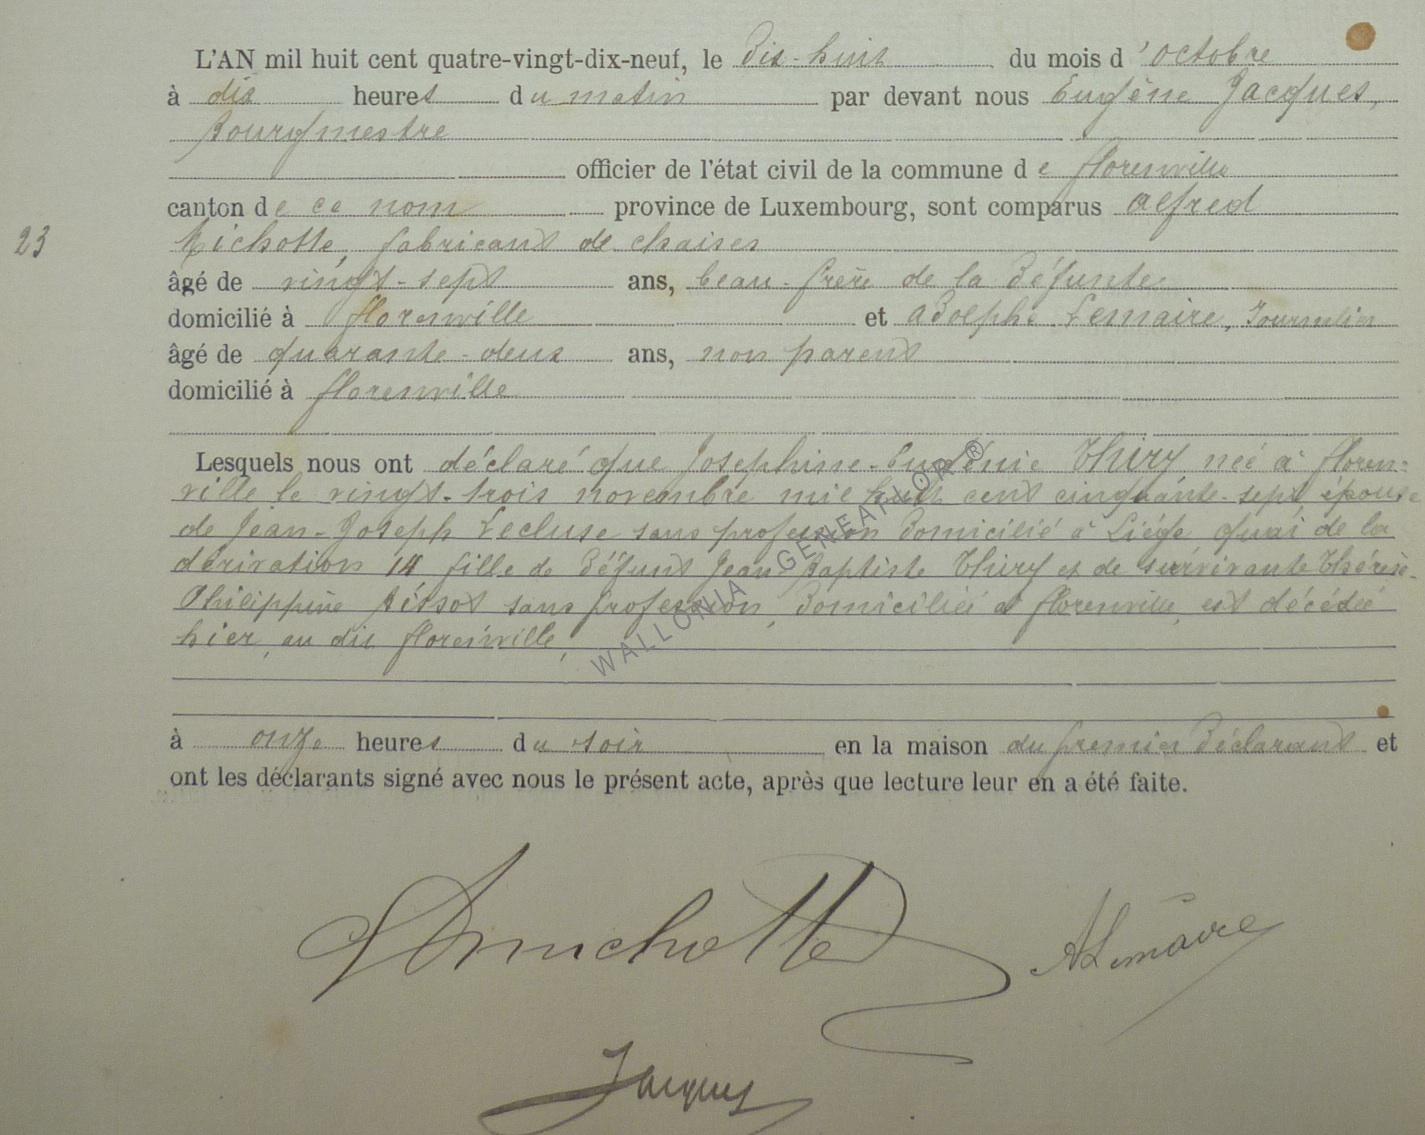 L'AN mil huit cent quatre-vingt-dix-neuf, le dix-huit du mois d'octobre
à dix heures du matin par devant nous Eugène Jacques,
Bourgmestre
officier de l'état civil de la commune de florenville
canton de ce nom province de Luxembourg, sont comparus Alfred
23 Michotte, fabricant de chaises
âgé de vingt-sept ans, beau-frère de la défunte
domicilié à florenville et Adolphe Lemaire, Journalier
âgé de quarante-deux ans, non parent
domicilié à florenville
Lesquels nous ont déclaré que Josephine-Eugénie Thiry née à floren=
ville le vingt-trois novembre mil huit cent cinquante-sept, épouse
de Jean-Joseph Lecluse sans profession domicilié à Liége quai de la
dérivation 14 fille de défunt Jean-Baptiste Thiry et de survivante Thérèse-
Philippine sans profession, domiciliée à florenville, est décédée
hier, au dit florenville,
à onze heures du soir en la maison du premier déclarant et
ont les déclarants signé avec nous le présent acte, après que lecture leur en a été faite.
WALLONIA GENEAFLOR ®
Michotte ALemaire
Jacques